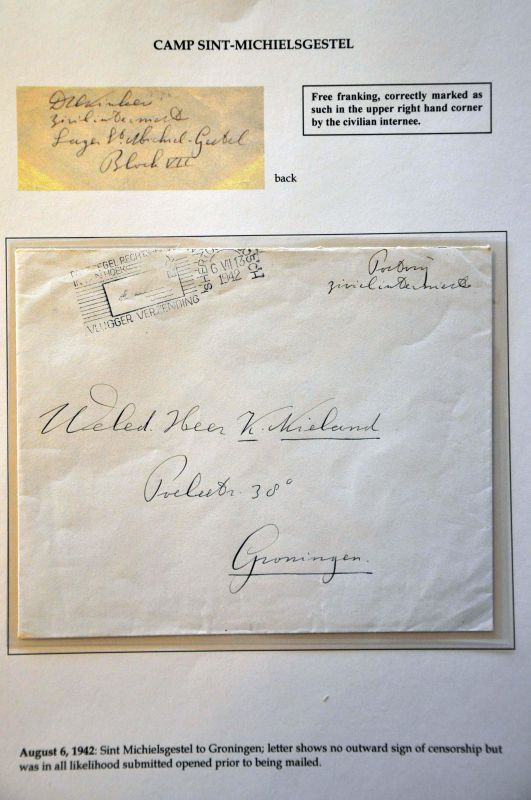 CAMP SINT-MICHIELSGESTEL
Zivilinternierte
Lager St Michiel-Gestel
Block VII
back
Free franking, correctly marked as
such in the upper right hand corner
by the civilian internee.
VLUGGER VERZENDING
6 VII 13
1942
Zivilinternierte
Weled. Heer K. Nieland
Poelestr. 38°
Groningen.
August 6, 1942: Sint Michielsgestel to Groningen; letter shows no outward sign of censorship but
was in all likelihood submitted opened prior to being mailed.